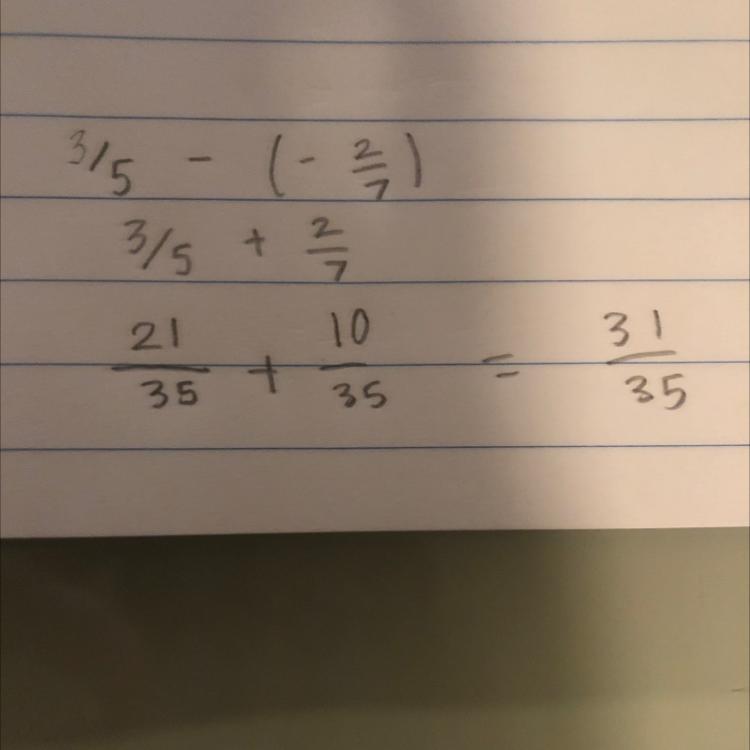 3/5 - (- 2/7)
3/5 + 2/7
21/35 + 10/35 = 31/35